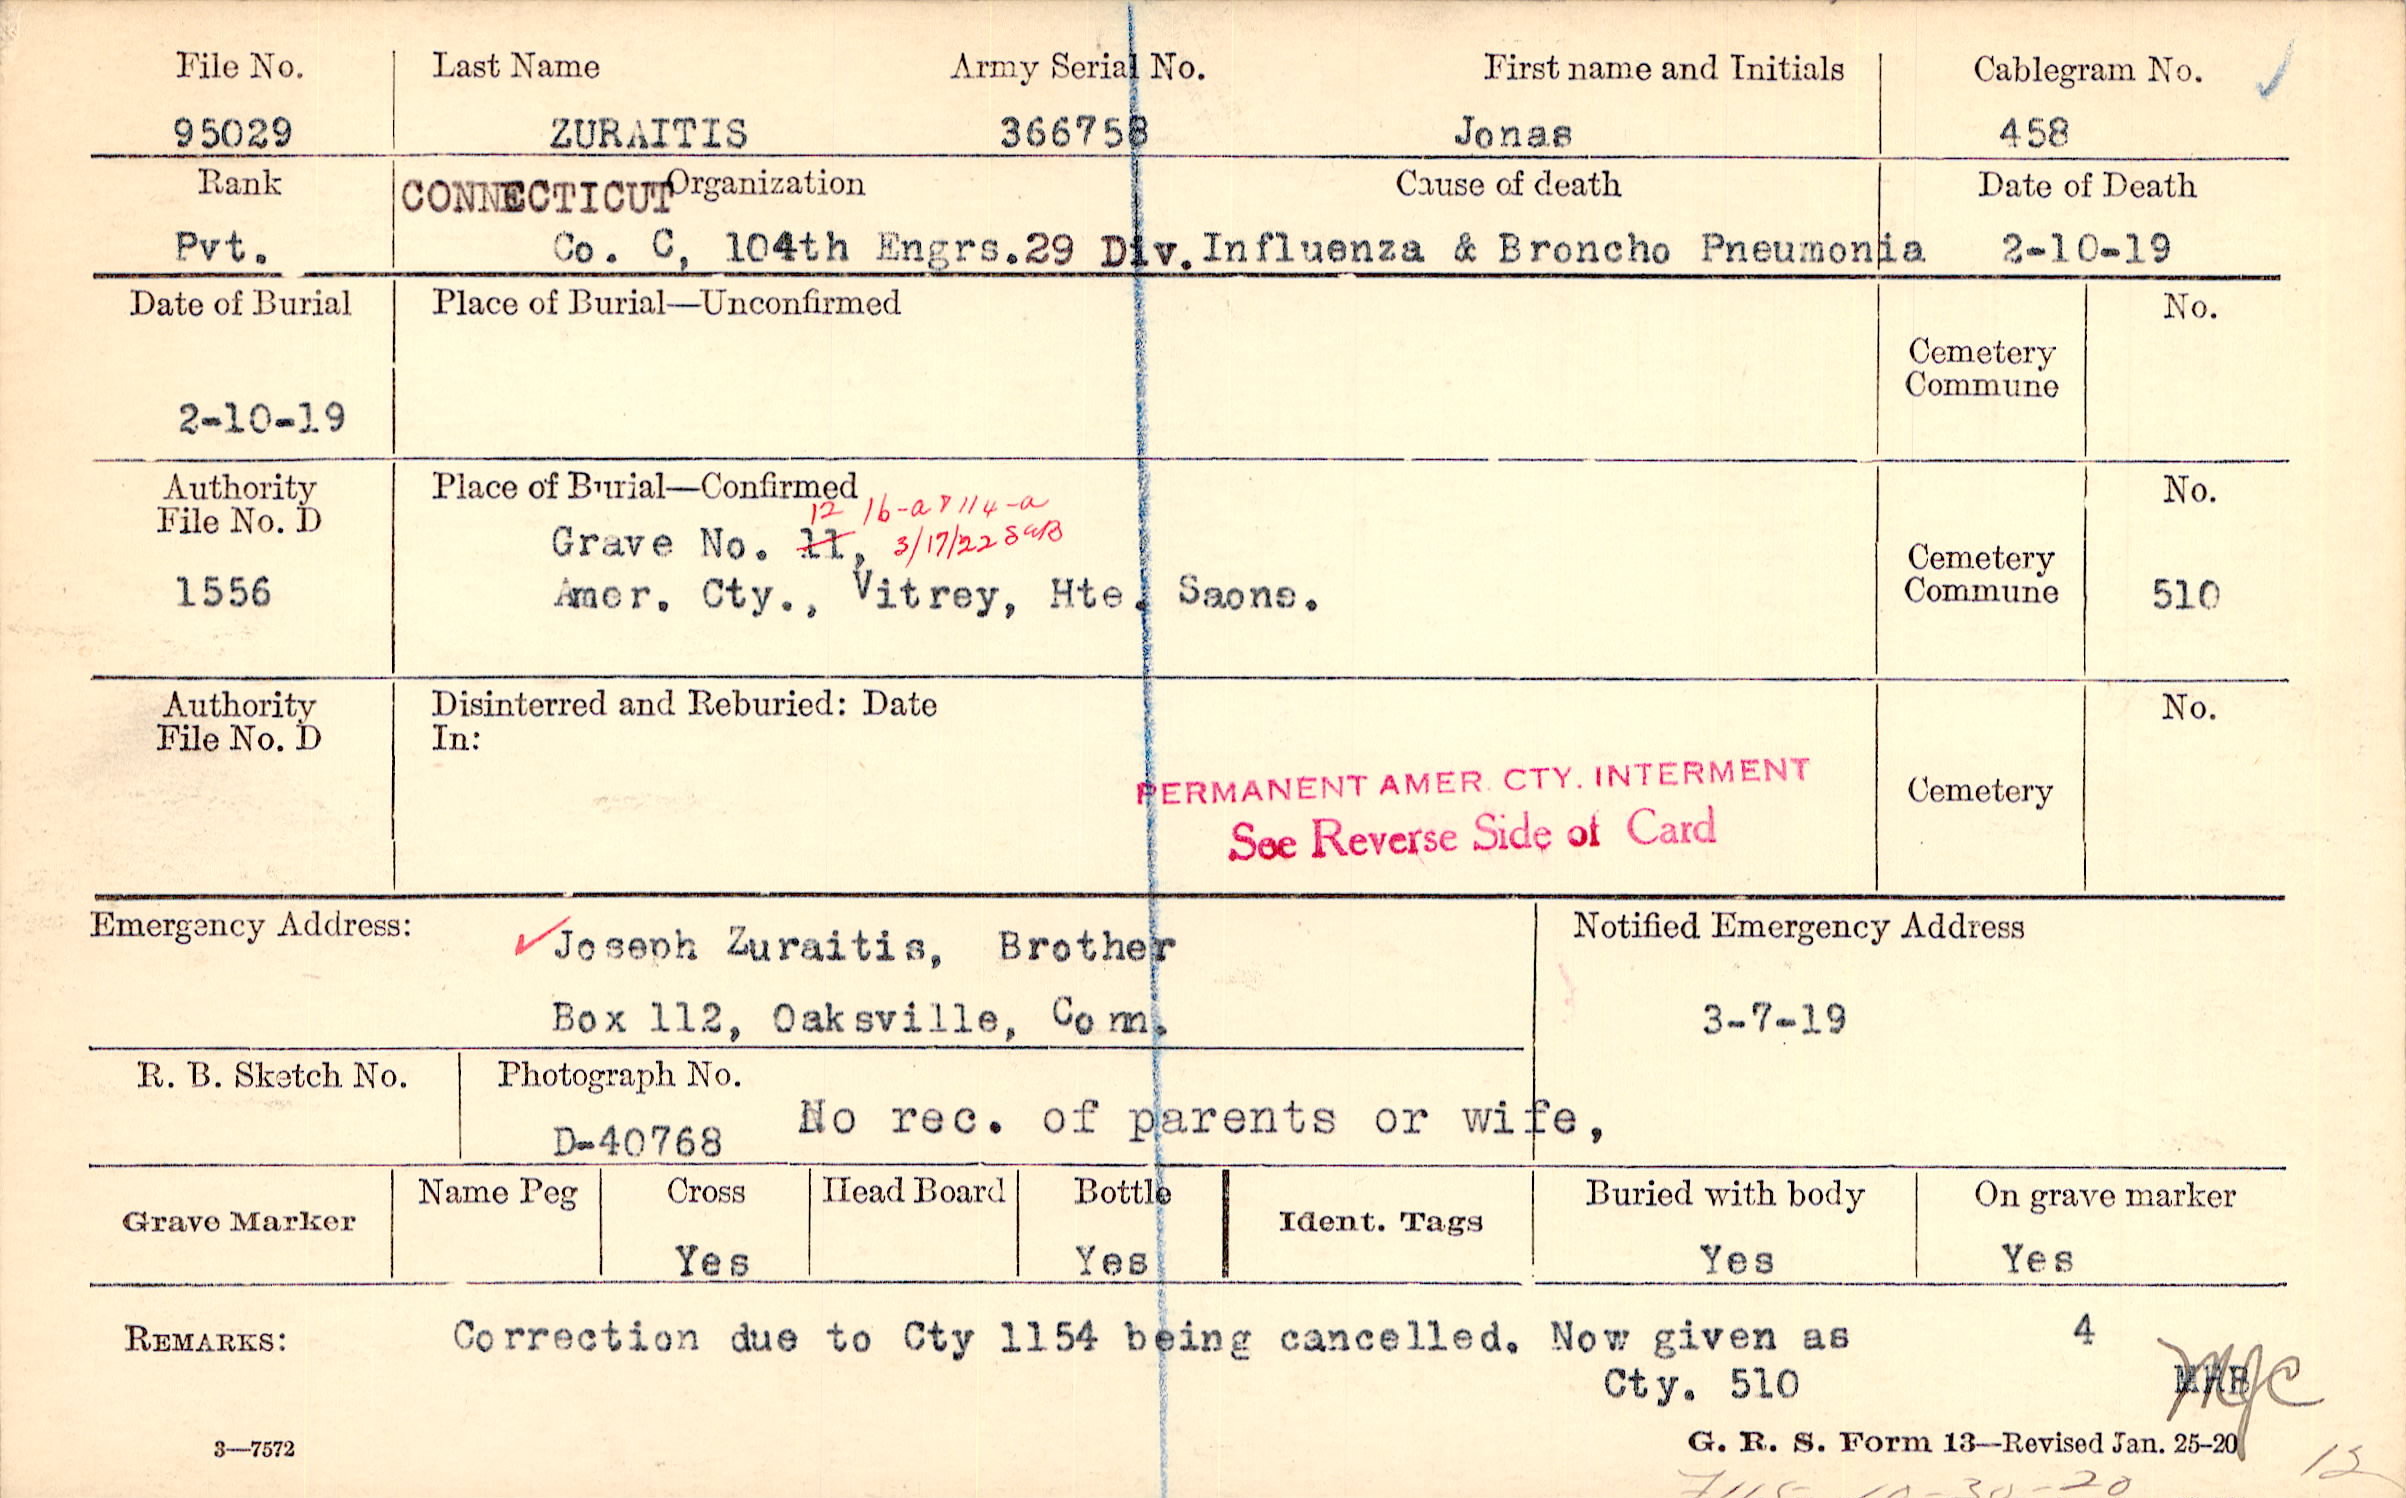 File No. Last Name Army Serial No. First name and Initials Cablegram No.
95029 ZURAITIS 366758 Jonas 458
Rank CONNECTICUT Organization Cause of death Date of Death
Pvt. Co. C, 104th Engrs. 29 Div. Influenza & Broncho Pneumonia 2-10-19
Date of Burial Place of Burial—Unconfirmed No.
Cemetery
Commune
2-10-19
Authority Place of Burial—Confirmed No.
File No. D 12 16-a & 114-a
Grave No. 11, 3/17/22
Cemetery
1556 Amer. Cty., Vitrey, Hte. Saone. Commune 510
Authority Disinterred and Reburied: Date No.
File No. D In:
PERMANENT AMER. CTY. INTERMENT
Cemetery
See Reverse Side of Card
Emergency Address: Notified Emergency Address
Joseph Zuraitis, Brother
Box 112, Oaksville, Conn. 3-7-19
R. B. Sketch No. Photograph No.
D-40768 No rec. of parents or wife,
Name Peg Cross Head Board Bottle Buried with body On grave marker
Grave Marker Ident. Tags
Yes Yes Yes Yes
REMARKS: Correction due to Cty 1154 being cancelled. Now given as 4
Cty. 510 MJC
3—7572 G. R. S. Form 13—Revised Jan. 25-20
12